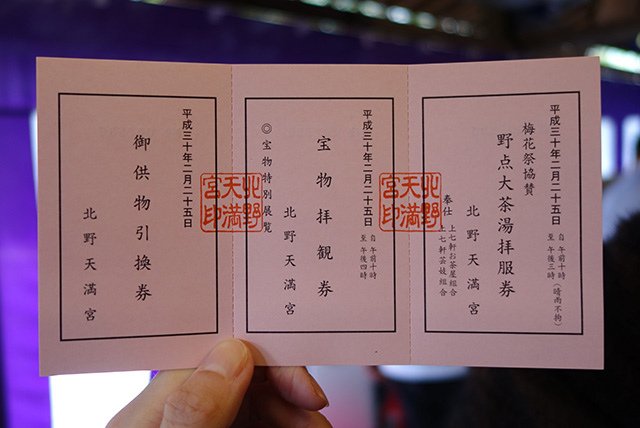 平成三十年二月二十五日
自 午前十時
至 午後三時（晴雨不拘）
梅花祭協賛
野点大茶湯拝服券
北野天満宮
奉仕
上七軒お茶屋組合
上七軒芸妓組合
北野天満宮印
平成三十年二月二十五日
自 午前十時
至 午後四時
宝物拝観券
北野天満宮
◎宝物特別展覧
北野天満宮印
平成三十年二月二十五日
御供物引換券
北野天満宮